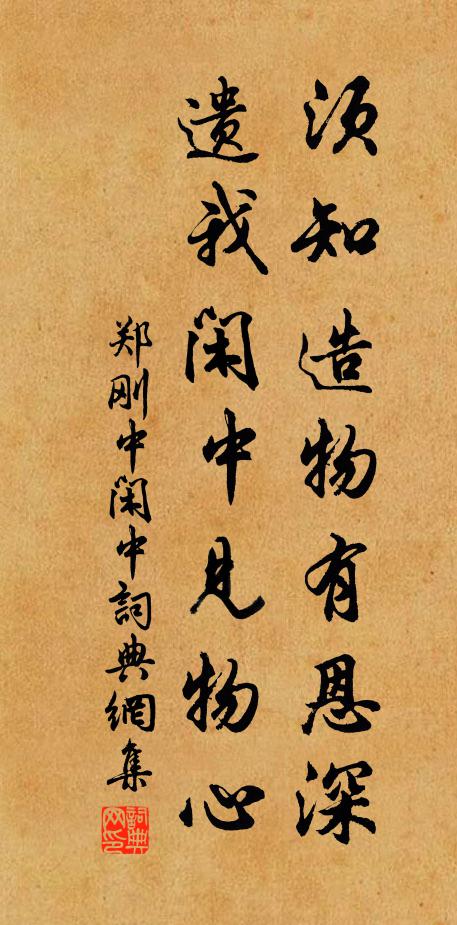 须知造物有恩深
遗我闲中见物心
郑刚中闲中词典網集
詞典网印